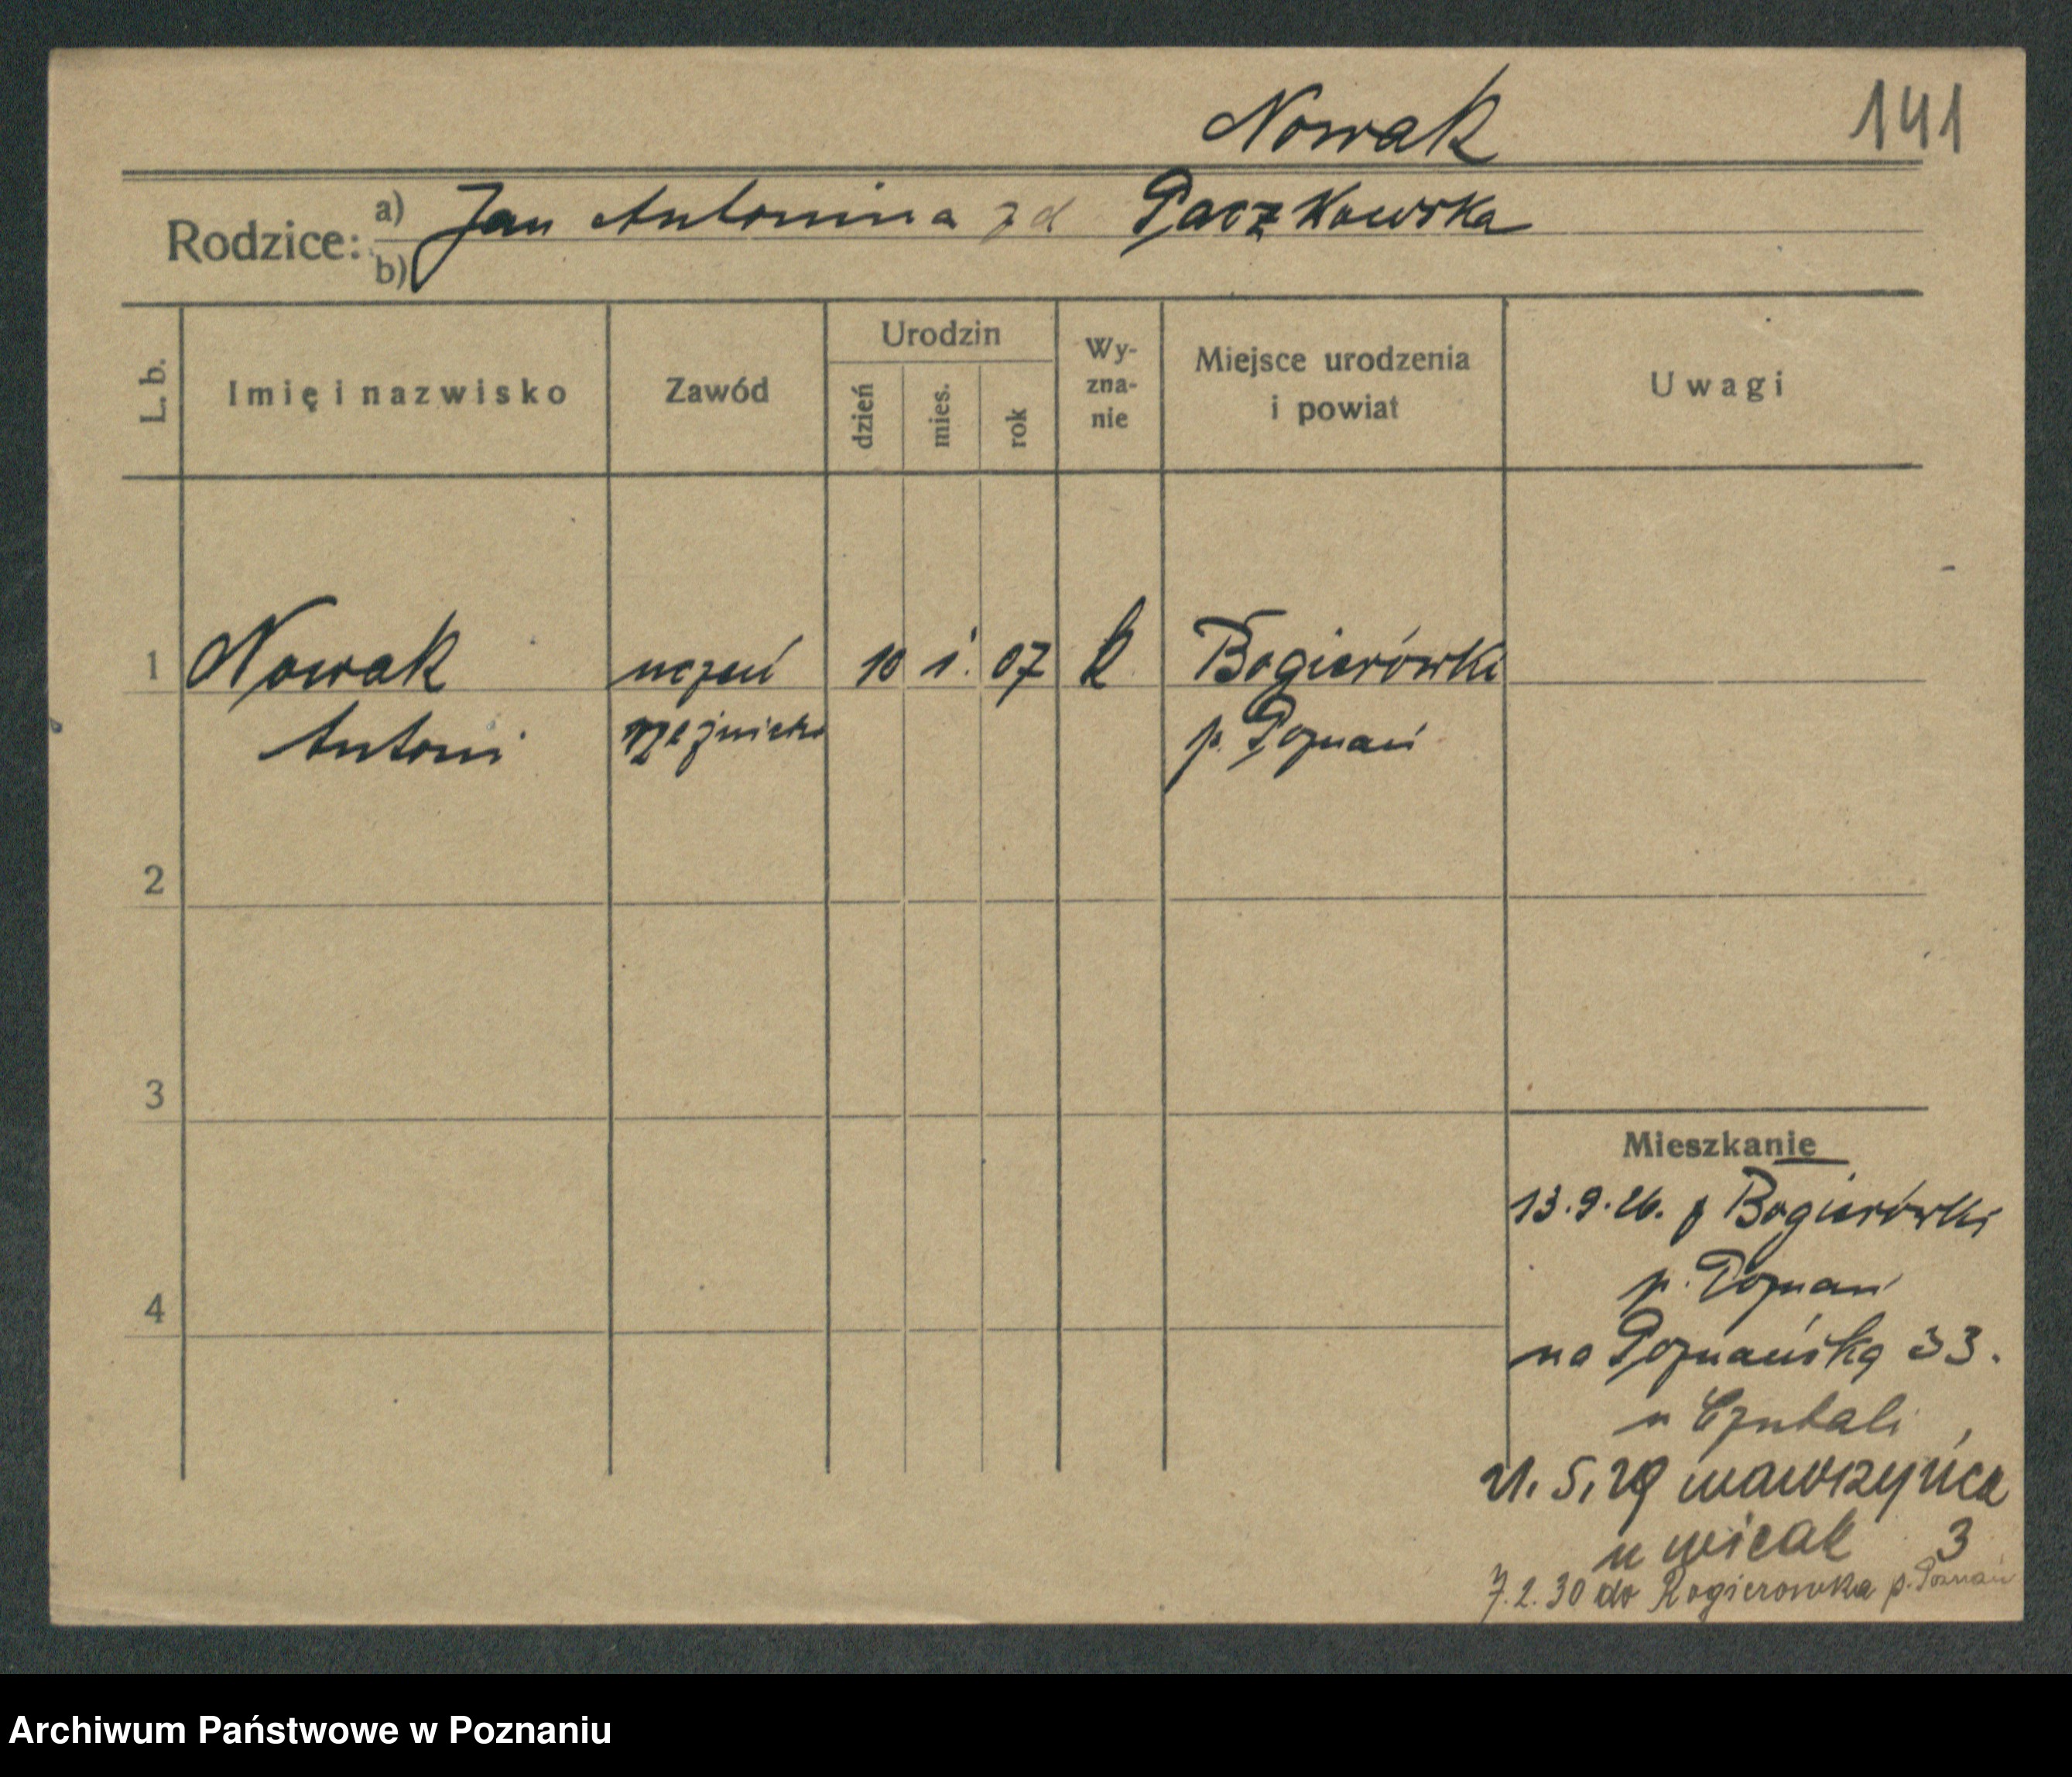 Nowak
141
Rodzice:
a) Jan Antonina zd Paczkowska
b)
L. b.
Imię i nazwisko
Zawód
Urodzin
dzień
mies.
rok
Wy-
zna-
nie
Miejsce urodzenia
i powiat
Uwagi
1 Nowak uczeń 10 1. 07 k Bogierówki
Antoni rzeźnicki p. Poznań
2
3
4
Mieszkanie
13.9.26. z Bogierówki
p. Poznań
na Poznańską 33.
u Czubali
21.5.29 wawrzyńca
u wicak 3
7.2.30 do Rogierowka p. Poznań
Archiwum Państwowe w Poznaniu